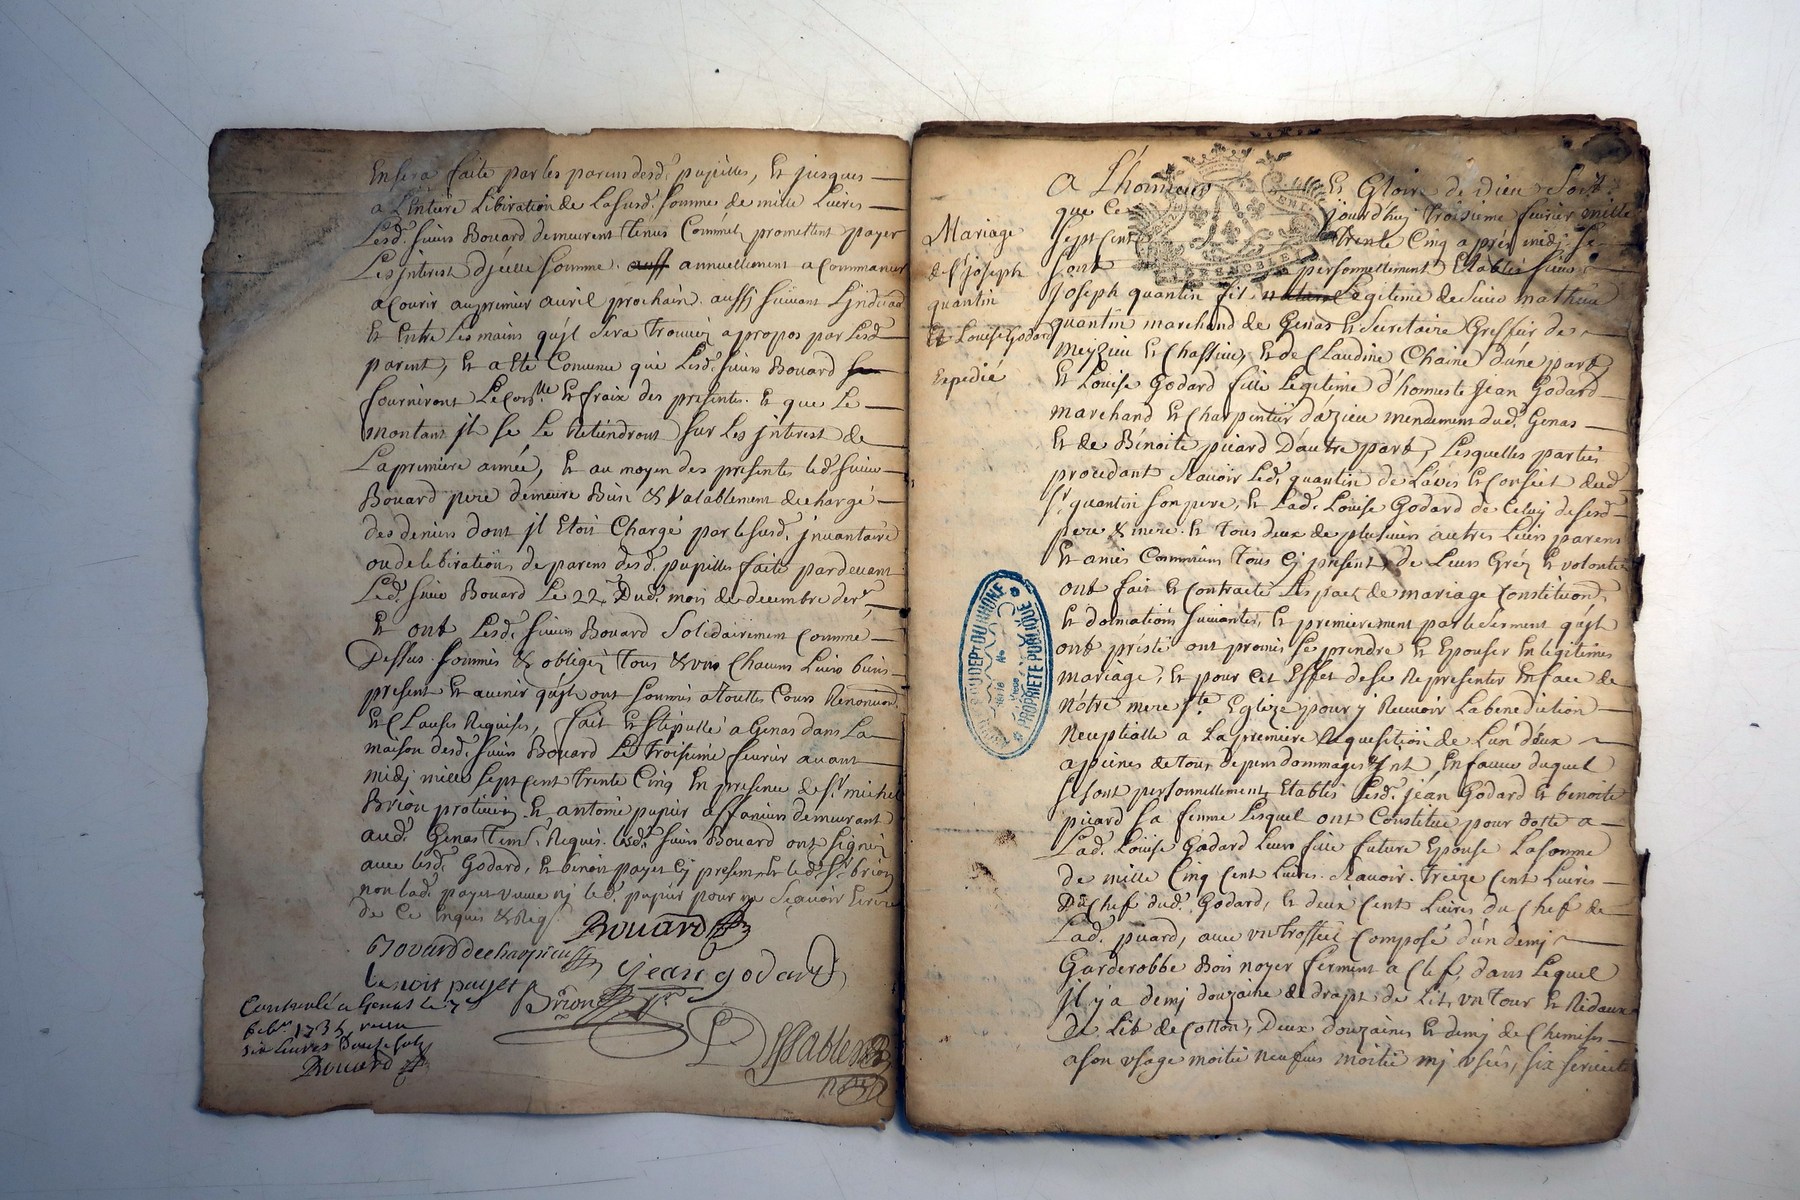 En sera faite par les parens desd. pupilles, Et jusques
a L'Entiere Liberation de La susd. somme de mille Livres
Lesd. sieurs Bouard demeurent tenus Comme promettent payer
Les interest d'jcelle somme annuellement a Commancer
a Courir au premier avril prochain. aussy suivant
Et Entre Les mains qu'jl sera trouvéz apropos par Lesd.
parent, Et a Esté Convenue que Lesd. sieurs Bouard
fourniront Le Et fraix des presentes. Et que Le
montant jls se Le Retiendront sur Les jnterest de
La premiere année, Et au moyen des presentes led. sieur
Bouard pere demeure Bien & Valablement dechargé
des deniers dont jl Etoit Chargé par le susd. jnvantaire
ou deliberations de parens desd. pupilles faite pardevant
Led. sieur Bouard Le 22. Dud. mois de decembre der.r
Et ont Lesd. sieurs Bouard Solidairement Comme
Dessus soumis & obligéz tous & uns Chacuns Leurs biens
present Et avenir qu'jls ont soumis a toutte Cours Renonciaon.
Et Clauses Requises, fait Et stipullé a Genas dans La
maison desd. sieurs Bouard Le troisieme fevrier avant
midj mille sept cent trente Cinq En presence de s.r michel
Brion praticien Et antoine papier affaneur demeurant
aud. Genas tem. Requis. Lesd. sieurs Bouard ont signéz
avec lesd. Godard, Et benoit payet Cy present Et led. s.r brion
non lad. payet veuve nj led. papier pour ne sçavoir Ecrire
de Ce Enquis & Req.
Bouard
Bouard
benoit payet jean godard
Brion
Controlé a Genas le 7e
feb.er 1735 receu
six Livres Douze sols
Bouard
Mariage
de s.r joseph
quantin
Et Louise Godard
Expedié
A L'honneur Et Gloire de Dieu Soit.
que Ce jourd'huy troisieme fevrier mille
sept cent trente Cinq aprés midj se
sont personnellement Etablis sieur
Joseph quantin fils Legitime de sieur mathieu
quantin marchand de Genas Et Secretaire Greffier de
Meyzieu Et Chassieu, Et de Claudine Chaine d'une part
Et Louise Godard fille Legitime d'honneste Jean Godard
marchand Et Charpentier d'azieu mendement dud. Genas
Et de Bénoite picard D'autre part, Lesquelles parties
procedant sçavoir Led. quantin de L'avis Et Conseit dud.
s.r quantin son pere, Et Lad. Louise Godard de Celuy de sesd.
pere & mere. Et tous deux de plusieurs autres Leurs parens
Et amis Communs tous Cy present, de Leurs Gréz Et volonté
ont fait Et Contracté Les pact de mariage Constitution,
Et donnations suivantes, Et premierement par le serment qu'jls
ont présté ont promis se prendre Et Epouser En légitimes
mariage, Et pour Cet Effet de se Representer En face de
nôtre mere s.te Eglize pour y Recevoir La benediction
neuptialle a La premiere Requesition de L'un d'eux
a peines de tous depens dommages & jnt, En faveur duquel
se sont personnellement Etablis Lesd. jean Godard Et benoite
picard sa femme Lesquel ont Constitué pour dotte a
Lad. Louise Godard Leurs fille future Epouse La somme
de mille Cinq Cent Livres. sçavoir. treize Cent Livres
Du Chef dud. Godard, Et deux Cent Livres du Chef de
Lad. picard, avec un trossel Composé d'un demj
Garderobbe Bois noyer fermant a Clef, dans Lequel
jl y a demj douzaine de drapt de Lit, un tour Et Rideaux
de Lit de Cotton, Deux douzaines Et demj de Chemises
a son usage moitié neufves moitié mj usés, six serviette
PROPRIETE PUBLIQUE
DEPT DU RHONE
GRENOBLE